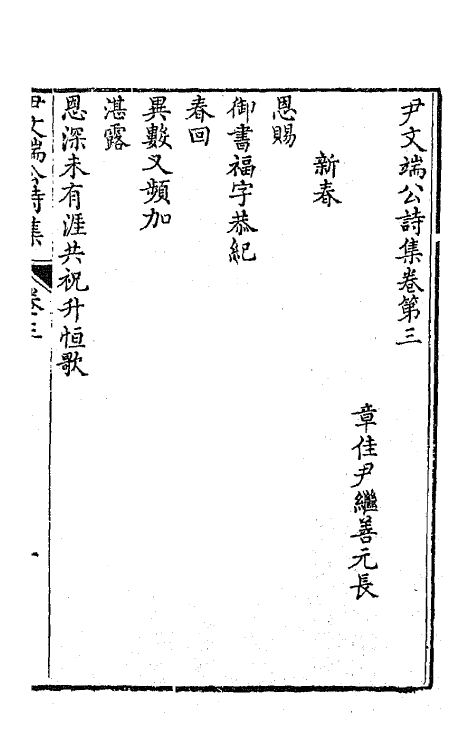 尹文端公詩集卷第三
章佳尹繼善元長
新春
恩賜
御書福字恭紀
春回
異數又頻加
湛露
恩深未有涯共祝升恒歌
尹文端公詩集 卷三 一